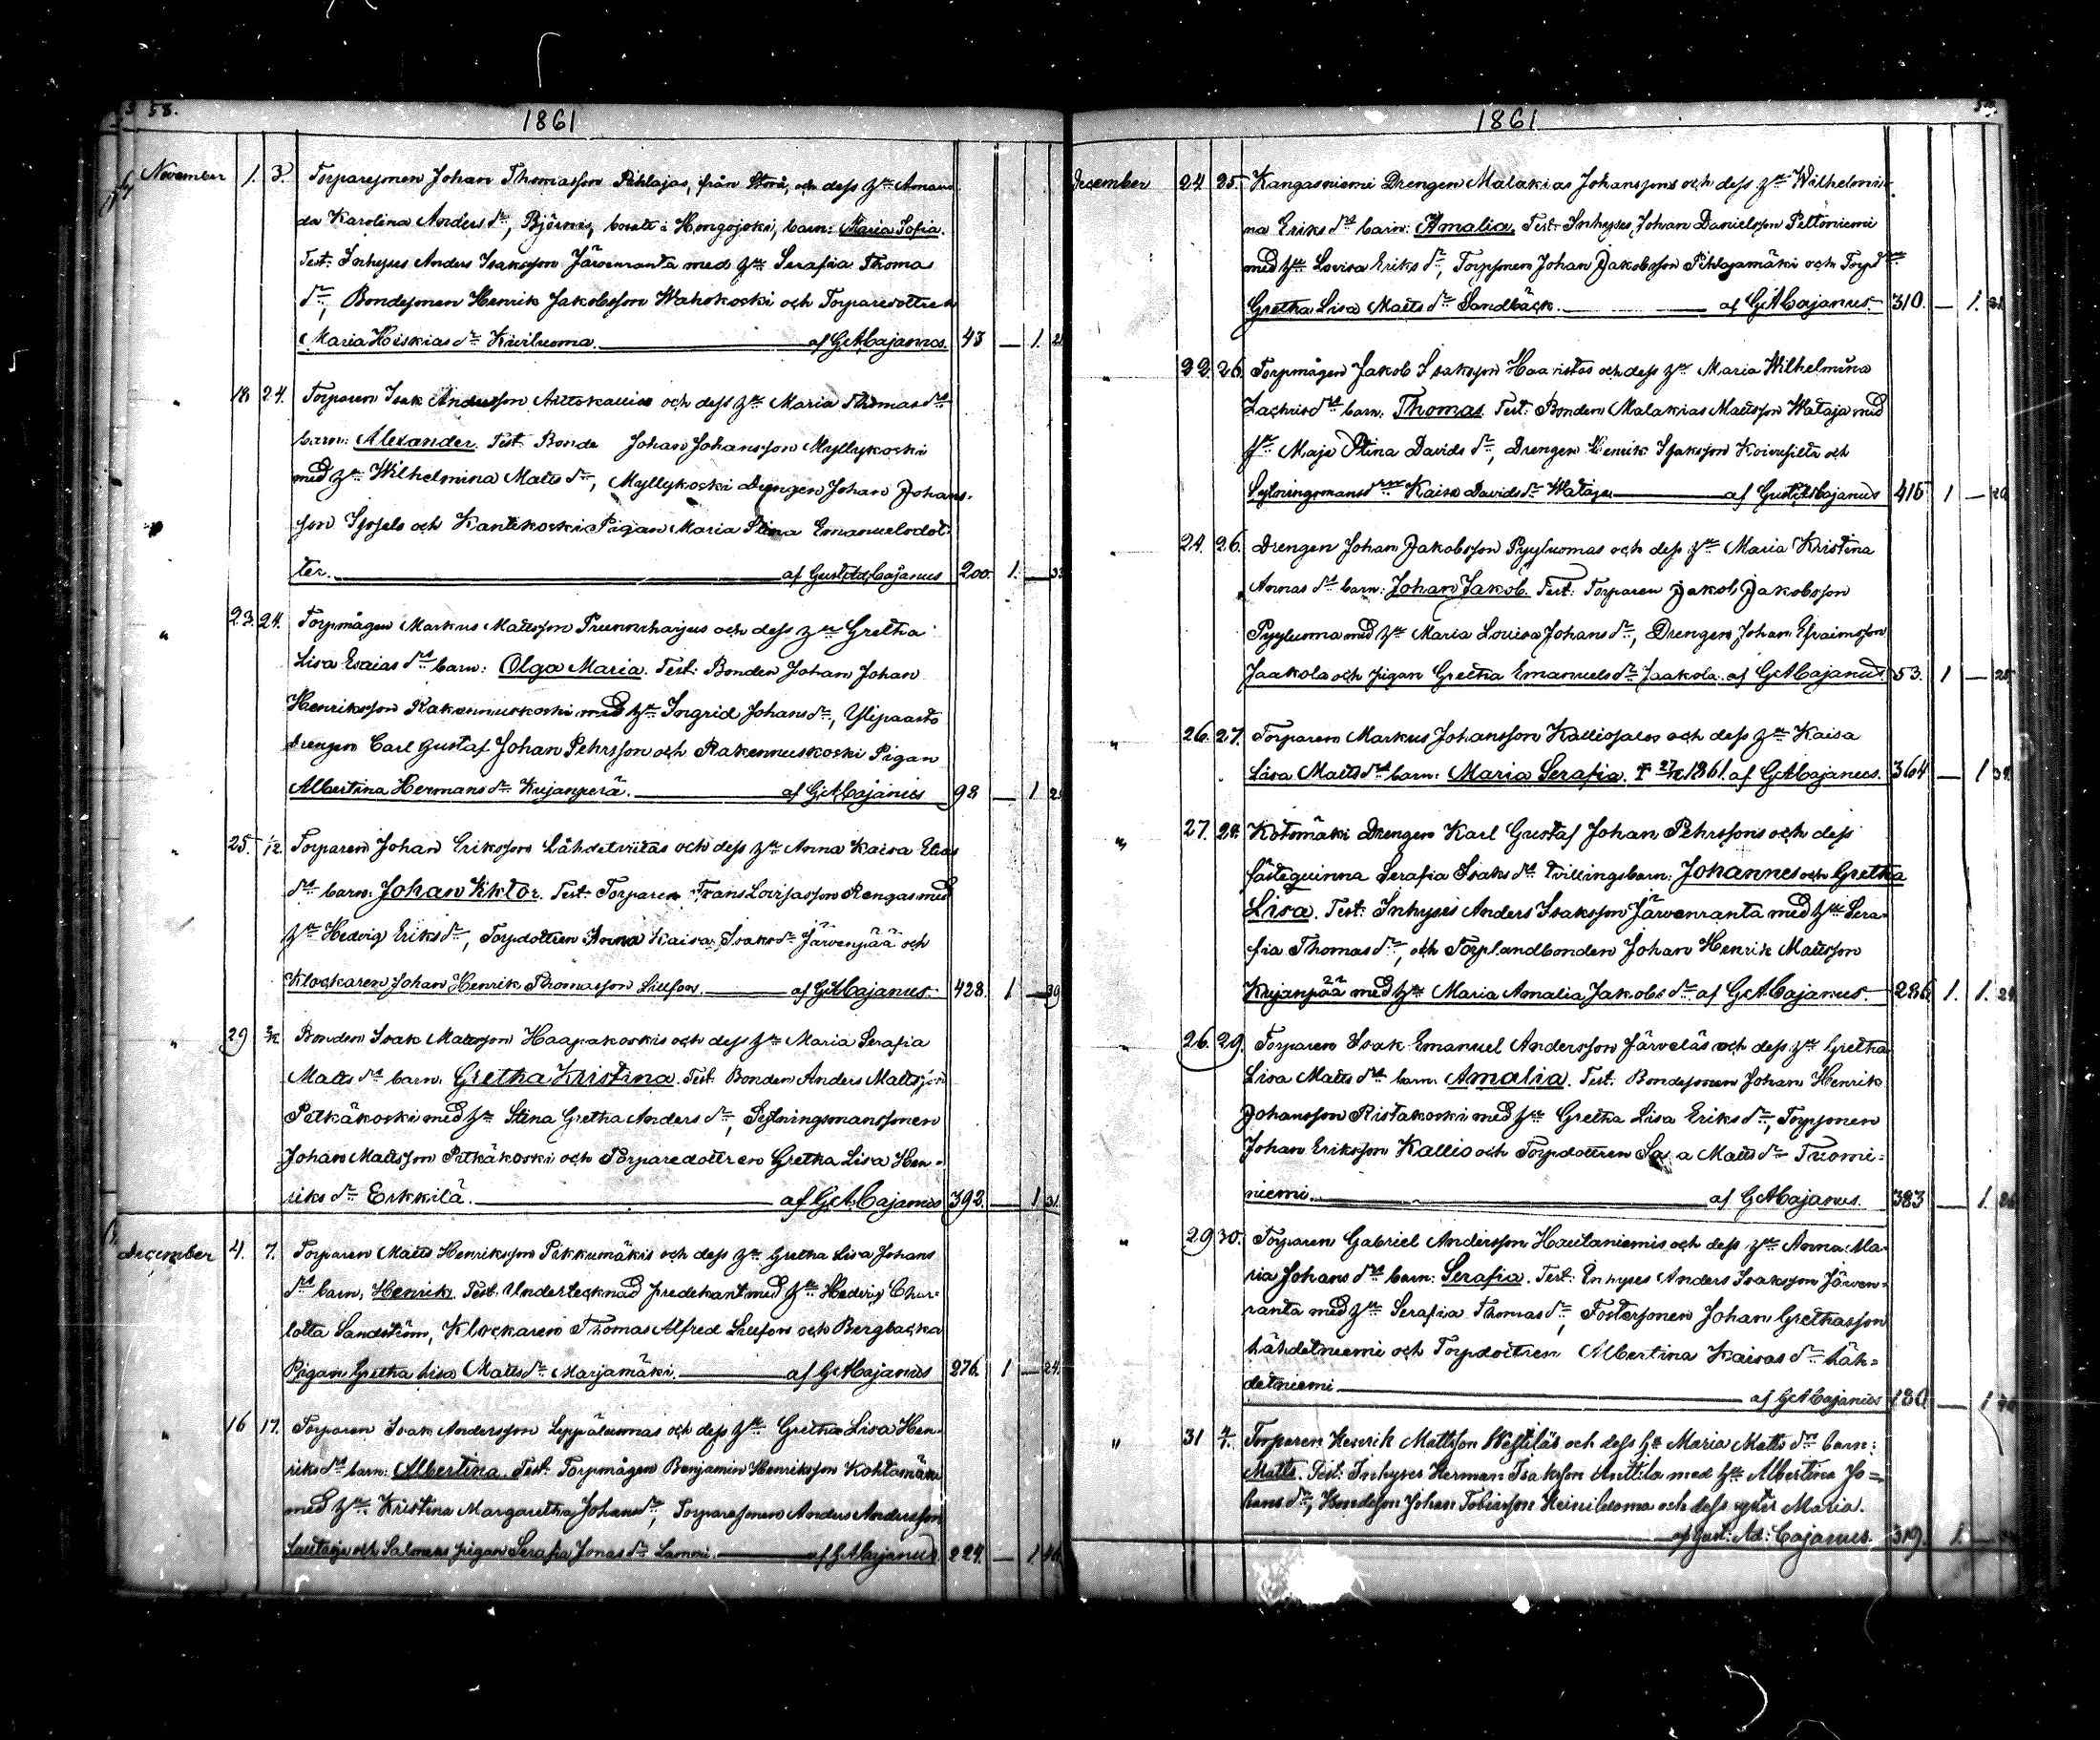 58.
1861
November 1. 3. Torparesonen Johan Thomasson Pihlajas, från Storå, och dess h:u Aman
da Karolina Anders d:r, Björni, boende i Hongojoki, barn: Maria Sofia.
Test: Inhyses Anders Isaksson Järvenranta med h:u Serafia Thomas
d:r, Bondesonen Henrik Jakobsson Wahokoski och Torparedottren
Maria Hiskias d:r Kiviluoma. af G A Cajanus. 43 — 1.
" 18 24. Torparen Isak Andersson Anttikallias och dess h:u Maria Thomas d:rs
barn: Alexander. Test: Bonde Johan Johansson Myllykoski
med h:u Wilhelmina Matts d:r, Myllykoski Drengen Johan Johans-
son och Kantikoski Pigan Maria Stina Emanuelsdot-
ter. af Gust. Ad. Cajanus 200. 1. —
" 23. 24. Torpmågen Markus Mattsson och dess h:u Gretha
Lisa Esaias d:rs barn: Olga Maria. Test: Bonden Johan Johan
Henriksson Rakennuskoski med h:u Ingrid Johans d:r, Ylipaasto
drengen Carl Gustaf Johan Pehrsson och Rakennuskoski Pigan
Albertina Hermans d:r Kujanperä. af G A Cajanus 98 — 1
" 25. 1/12. Torparen Johan Eriksson Lähdetviitas och dess h:u Anna Kaisa Elias
d:rs barn: Johan Viktor. Test: Torparen Frans Lovisasson Rengas med
h:u Hedvig Eriks d:r, Torpdottren Anna Kaisa Isaks d:r Järvenpää och
Klockaren Johan Henrik Thomasson Lillfors. af G A Cajanus. 428. 1 — 39
" 29 2/12 Bonden Isak Mattsson Haapakoskis och dess h:u Maria Serafia
Matts d:rs barn: Gretha Kristina. Test: Bonden Anders Mattsson
Pitkäkoski med h:u Stina Gretha Anders d:r, Sytningsmanssonen
Johan Mattsson Pitkäkoski och Torparedottren Gretha Lisa Hen-
riks d:r Erkkilä. af G A Cajanus 392. — 1 31.
December 4. 7. Torparen Matts Henriksson Pikkumäkis och dess h:u Gretha Lisa Johans
d:rs barn, Henrik. Test: Undertecknad predikant med h:u Hedvig Char-
lotta Sandström, Klockaren Thomas Alfred Lillfors och Bergbacka
Pigan Gretha Lisa Matts d:r Marjamäki. af G A Cajanus 276. 1 — 24.
" 16 17. Torparen Isak Andersson Leppäluomas och dess h:u Gretha Lisa Hen-
riks d:rs barn: Albertina. Test: Torpmågen Benjamin Henriksson Kohtamäki
med h:u Kristina Margaretha Johans d:r, Torparesonen Anders Andersson
Lautaja och Salmens pigan Serafia Jonas d:r Lammi. af G A Cajanus 224. — 1 40.
1861
December 24. 25. Kangasniemi Drengen Malakias Johanssons och dess h:u Wilhelmi-
na Eriks d:rs barn: Amalia. Test: Inhyses Johan Danielsson Peltoniemi
med h:u Lovisa Eriks d:r, Torpsonen Johan Jakobsson Pihlajamäki och Torpd:ren
Gretha Lisa Matts d:r Sandbäck. af G A Cajanus. 310. — 1.
" 22. 26. Torpmågen Jakob Isaksson Haaristos och dess h:u Maria Wilhelmina
Zachris d:rs barn: Thomas. Test: Bonden Malakias Mattsson Wataja med
h:u Maja Stina Davids d:r, Drengen Henrik Isaksson Koivusilta och
Sytningsmansd:ren Kaisa Davids d:r Wataja. af Gust. Ad. Cajanus 415 1 —
" 24. 26. Drengen Johan Jakobsson Pyyluomas och dess h:u Maria Kristina
Annas d:rs barn: Johan Jakob. Test: Torparen Jakob Jakobsson
Pyyluoma med h:u Maria Lovisa Johans d:r, Drengen Johan Efraimsson
Jaakola och pigan Gretha Emanuels d:r Jaakola. af G A Cajanus 53. 1 — 25
" 26. 27. Torparen Markus Johansson Kalliosalos och dess h:u Kaisa
Lisa Matts d:rs barn: Maria Serafia. † 27/12 1861. af G A Cajanus. 364 — 1
" 27. 28. Kotomäki Drengen Karl Gustaf Johan Pehrssons och dess
fästeqvinna Serafia Isaks d:rs tvillingsbarn: Johannes och Gretha
Lisa. Test: Inhyses Anders Isaksson Järvenranta med h:u Sera-
fia Thomas d:r, och Torplandbonden Johan Henrik Mattsson
Kujanpää med h:u Maria Amalia Jakobs d:r af G A Cajanus. 286. 1. 1.
" 26. 29. Torparen Isak Emanuel Andersson Järveläs och dess h:u Gretha
Lisa Matts d:rs barn: Amalia. Test: Bondesonen Johan Henrik
Johansson Ristakoski med h:u Gretha Lisa Eriks d:r, Torpsonen
Johan Eriksson Kallio och Torpdottren Matts d:r Tuomi-
niemi. af G A Cajanus. 383 — 1
" 29 30. Torparen Gabriel Andersson Hautaniemis och dess h:u Anna Ma-
ria Johans d:rs barn: Serafia. Test: Inhyses Anders Isaksson Järven-
ranta med h:u Serafia Thomas d:r, Fostersonen Johan Grethasson
Lähdetniemi och Torpdottren Albertina Kaisas d:r Läh-
detniemi. af G A Cajanus 180 — 1
" 31 Torparen Henrik Mattsson Westiläs och dess h:u Maria Matts d:rs barn:
Matts. Test: Inhyses Herman Isaksson Anttila med h:u Albertina Jo-
hans d:r, Bondeson Johan Tobiasson Heiniluoma och dess syster Maria.
af Gust: Ad: Cajanus. 319. 1. —